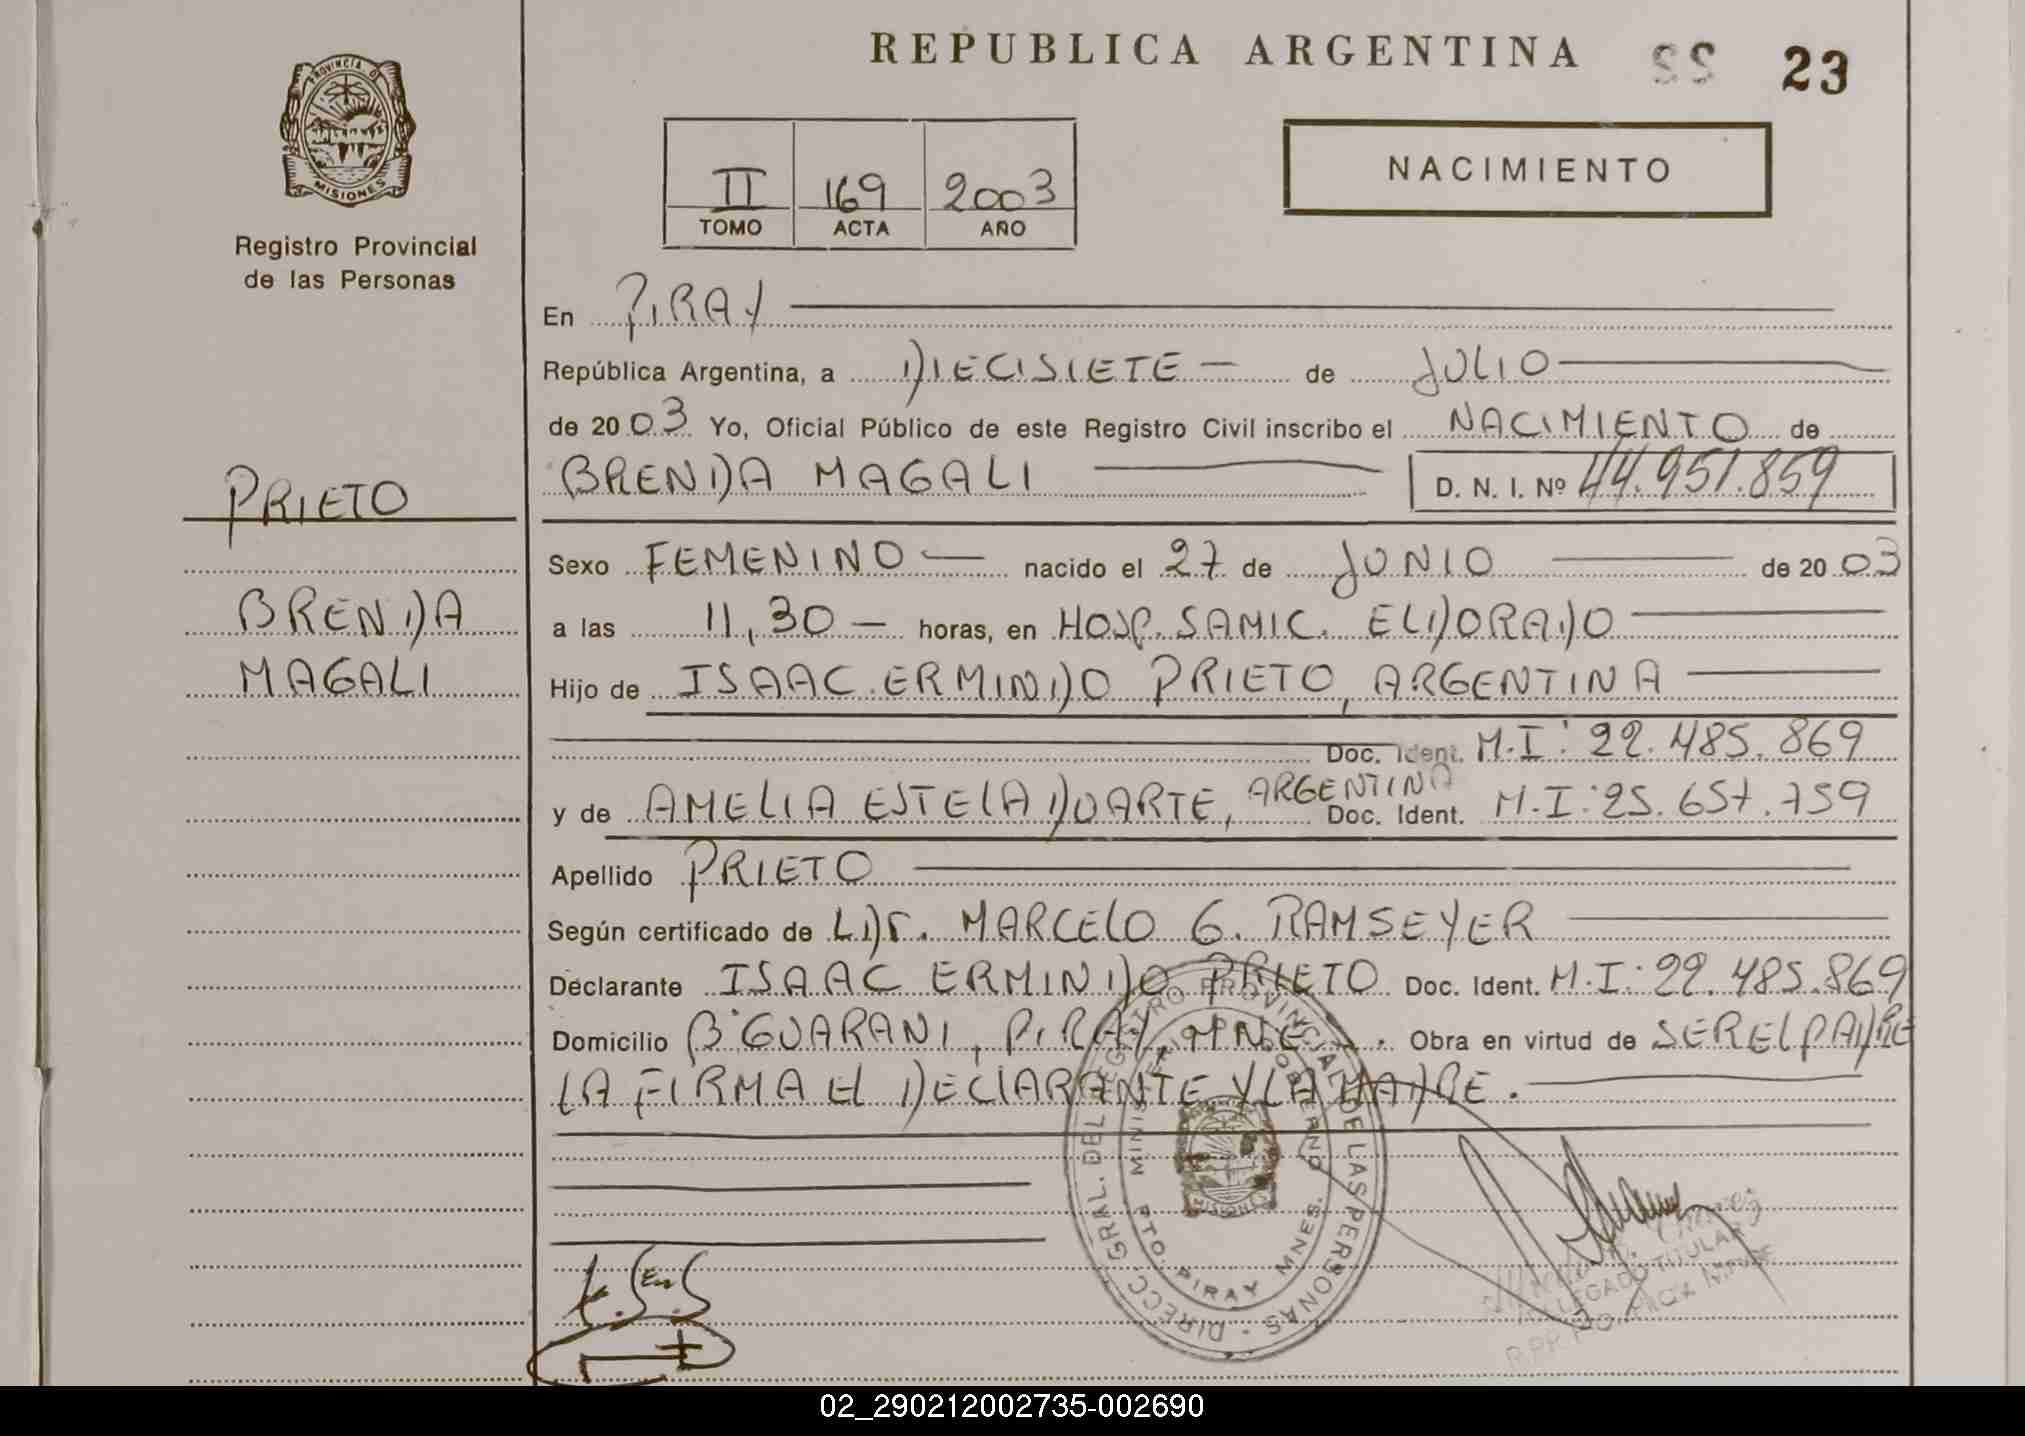 REPUBLICA ARGENTINA 22 23
PROVINCIA D MISIONES
Registro Provincial
de las Personas
II 169 2003
TOMO ACTA AÑO
NACIMIENTO
PRIETO
BRENDA
MAGALI
En PIRAY
República Argentina, a DIECISIETE de JULIO
de 2003 Yo, Oficial Público de este Registro Civil inscribo el NACIMIENTO de
BRENDA MAGALI D. N. I. Nº 44.951.859
Sexo FEMENINO nacido el 27 de JUNIO de 2003
a las 11,30 horas, en HOSP. SAMIC. ELDORADO
Hijo de ISAAC ERMINDO PRIETO, ARGENTINA
Doc. Ident. M.I: 22.485.869
y de AMELIA ESTELA DUARTE, ARGENTINA Doc. Ident. M.I: 25.657.759
Apellido PRIETO
Según certificado de MARCELO G. RAMSEYER
Declarante ISAAC ERMINDO PRIETO Doc. Ident. M.I: 22.485.869
Domicilio Bº GUARANI, PIRAY, MNES. Obra en virtud de SER EL PADRE
LA FIRMA EL DECLARANTE Y LA MADRE.
DIRECC. GRAL. DEL REGISTRO PROVINCIAL DE LAS PERSONAS
MINISTERIO DE GOBIERNO
PTO. PIRAY MNES.
DELEGADO TITULAR
02_290212002735-002690